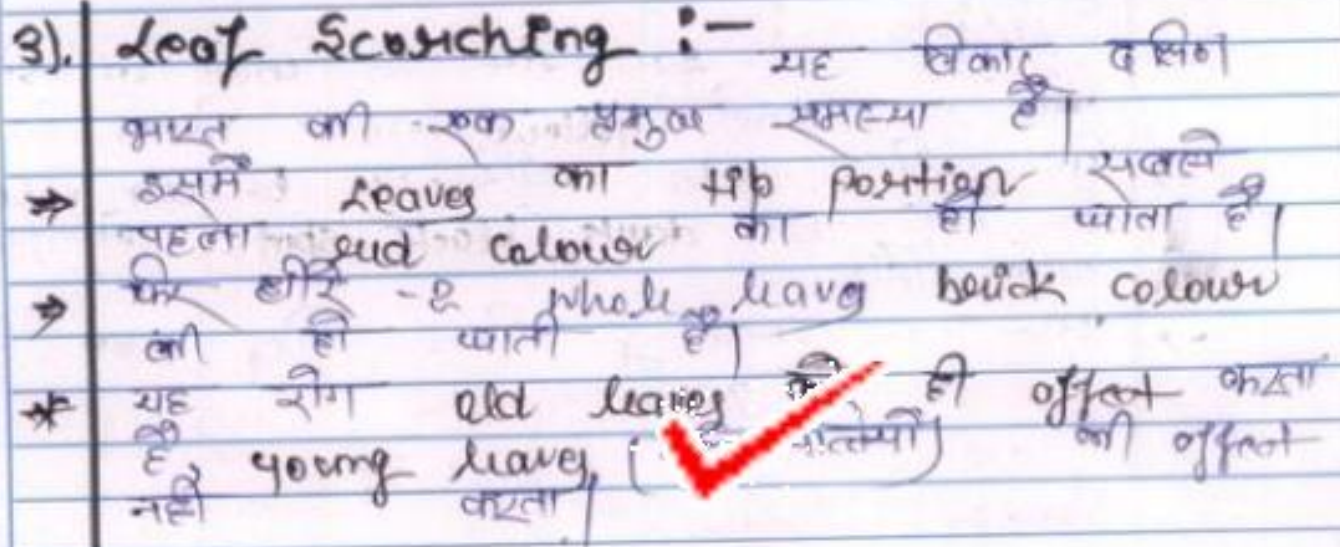 3). Leaf Scorching :- यह विकार दक्षिण
भारत की एक प्रमुख समस्या है।
⇒ इसमें Leaves का tip portion सबसे
पहला red colour का हो जाता है।
⇒ फिर धीरे-2 whole leaves brick colour
की हो जाती है।
* यह रोग old leaves को ही effect करता
है, young leaves ( पत्तियों) को effect
नहीं करता।